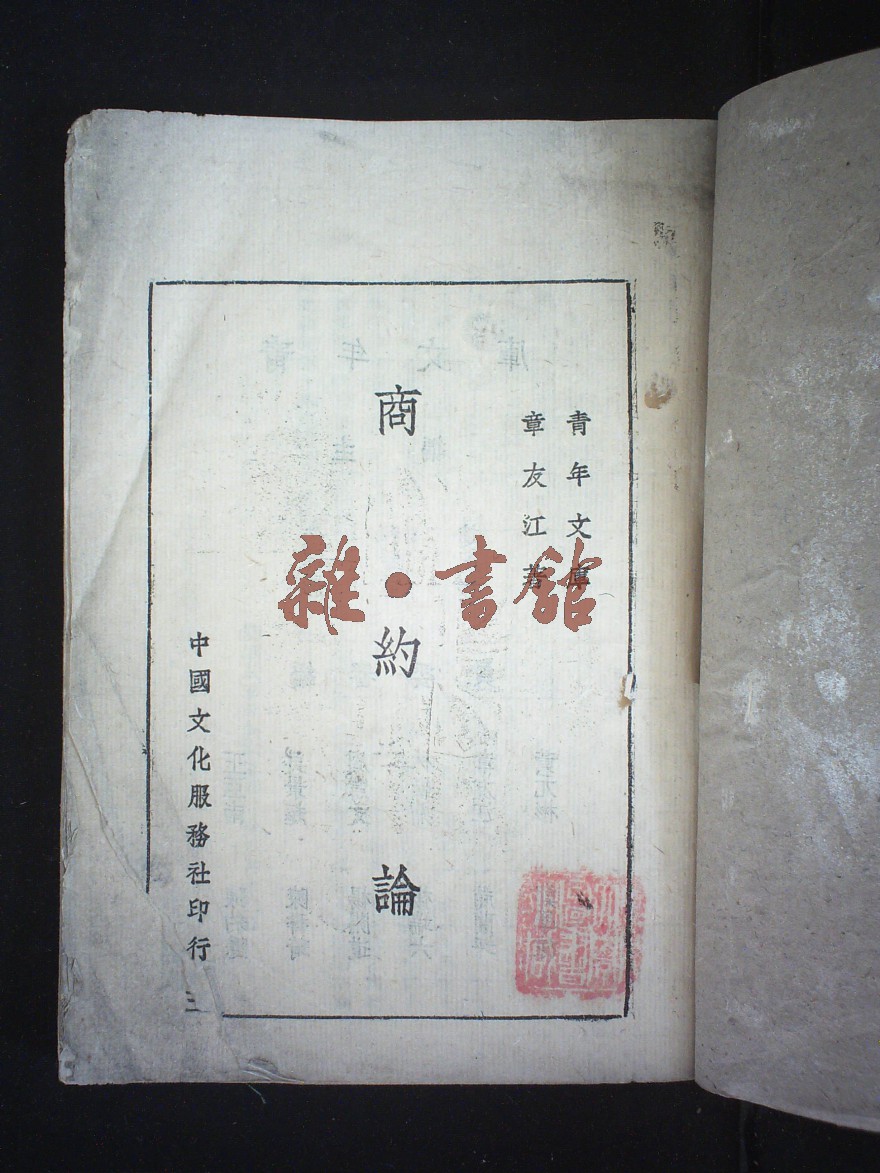 青年文庫
章友江著
商約論
中國文化服務社印行
雜·書館